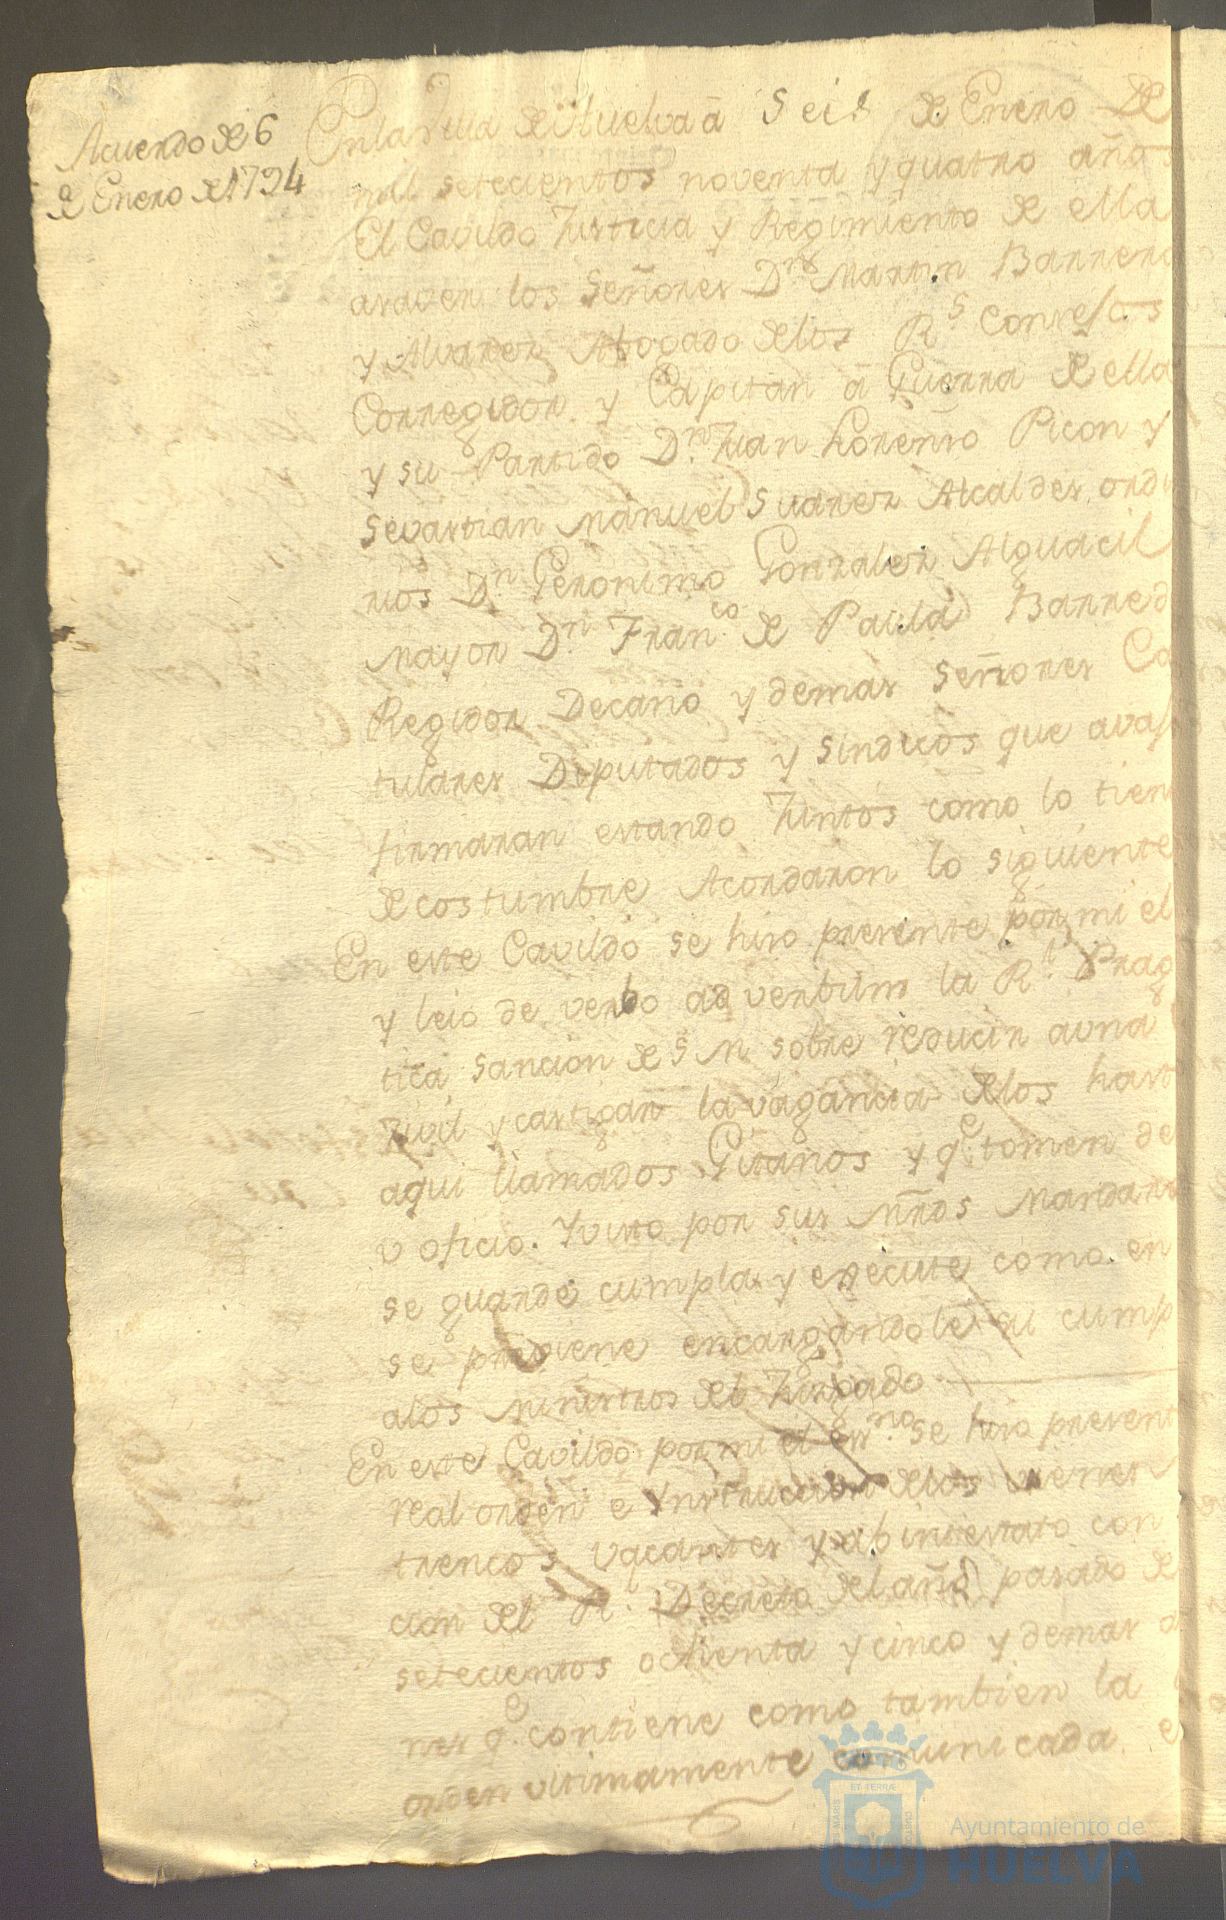 Acuerdo de 6
de Enero de 1794
En la Villa de Huelva â Seis de Enero de
mil setecientos noventa y quatro años
El Cavildo Justicia y Regimiento de ella
asaver los Señores Dn. Martin Barrera
y Alvarez Abogado delos Rs. Consejos
Corregidor y Capitan â Guerra de ella
y su Partido Dn. Juan Lorenso Picon y
Sevastian Manuel Suarez Alcaldes ordi
rios Dn. Geronimo Gonzalez Alguacil
mayor Dn. Franco. de Paula Barred
Regidor Decano y demas Señores Ca
tulares Diputados y Sindicos que avaj
firmaran estando Juntos como lo tien
de costumbre Acordaron lo siguiente
En este Cavildo se hiso presente por mi el
y leio de verbo ad verbum la Rl. Prag
tica Sancion de S. M. sobre reducir auna
Zivil y castigar la vagancia delos hast
aqui llamados Gitanos y qe. tomen de
v oficio. Yvisto por sus Mrds Mandaro
se guarde cumpla y execute como en
se previene encargandole su cump
alos ministros del Juzgado
En este Cavildo por mi el Essno. se hiso present
real orden é Ynstruccion delos vienes
trencos, vacantes y abintestato con
cion del Rl. Decreto del año pasado de
setecientos ochenta y cinco y demas
nes qe. contiene como tambien la
orden ultimamente comunicada e
MARIS
ET TERRÆ
CUSTODIA
Ayuntamiento de
HUELVA